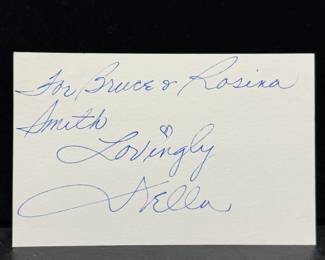 For Bruce & Rosina
Smith
Lovingly
Della